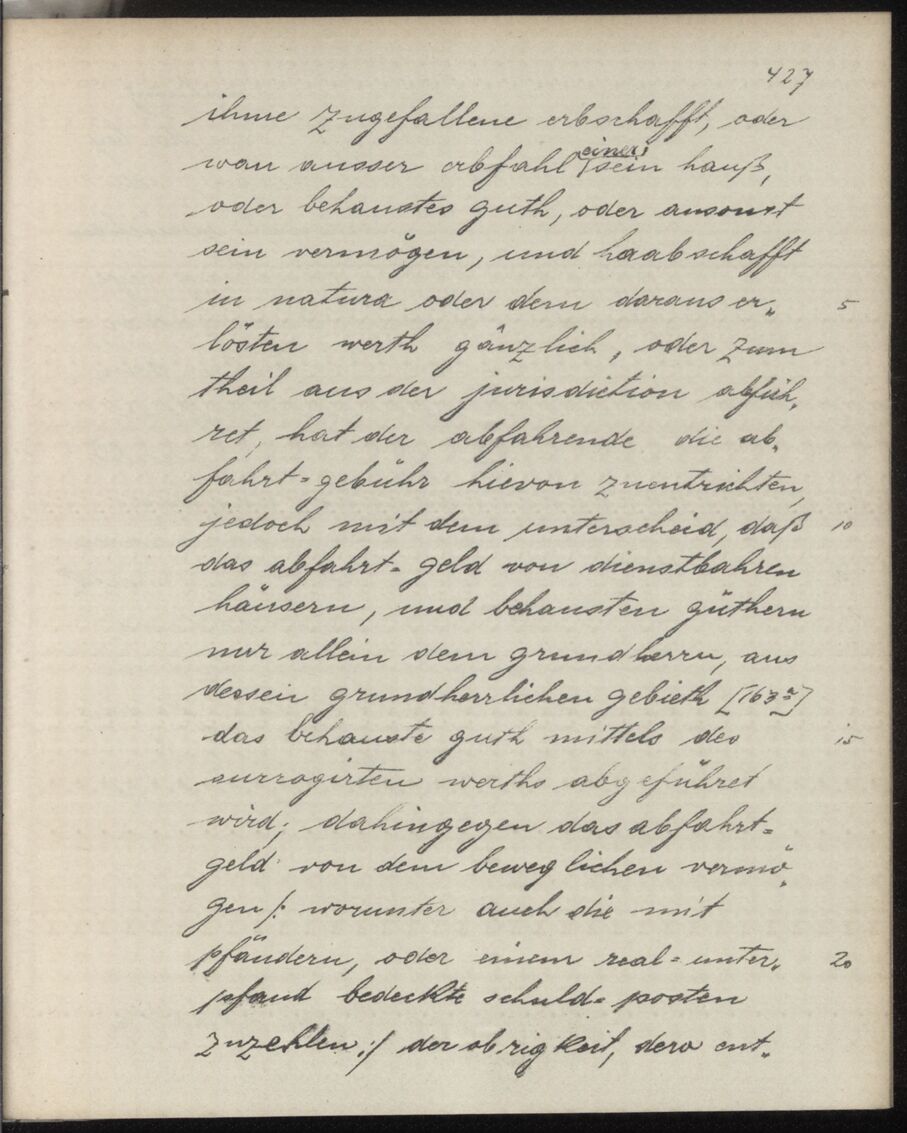 427
ihme zugefallene erbschafft, oder
wan ausser erbfahl einer sein hauß,
oder behaustes guth, oder ansonst
sein vermögen, und haabschafft
in natura oder dem daraus er„ 5
lösten werth gänzlich, oder zum
theil aus der jurisdiction abfüh„
ret, hat der abfahrende die ab„
fahrt=gebühr hievon zuentrichten,
jedoch mit dem unterscheid, daß 10
das abfahrt=geld von dienstbahren
häusern, und behausten güthern
nur allein dem grundherrn, aus
dessen grundherrlichen gebieth [163r]
das behauste guth mittels des 15
surrogirten werths abgeführet
wird; dahingegen das abfahrt=
geld von dem beweglichen vermö„
gen /: worunter auch die mit
pfändern, oder einem real=unter„ 20
pfand bedeckte schuld=posten
zuzehlen :/ der obrigkeit, dero ent„